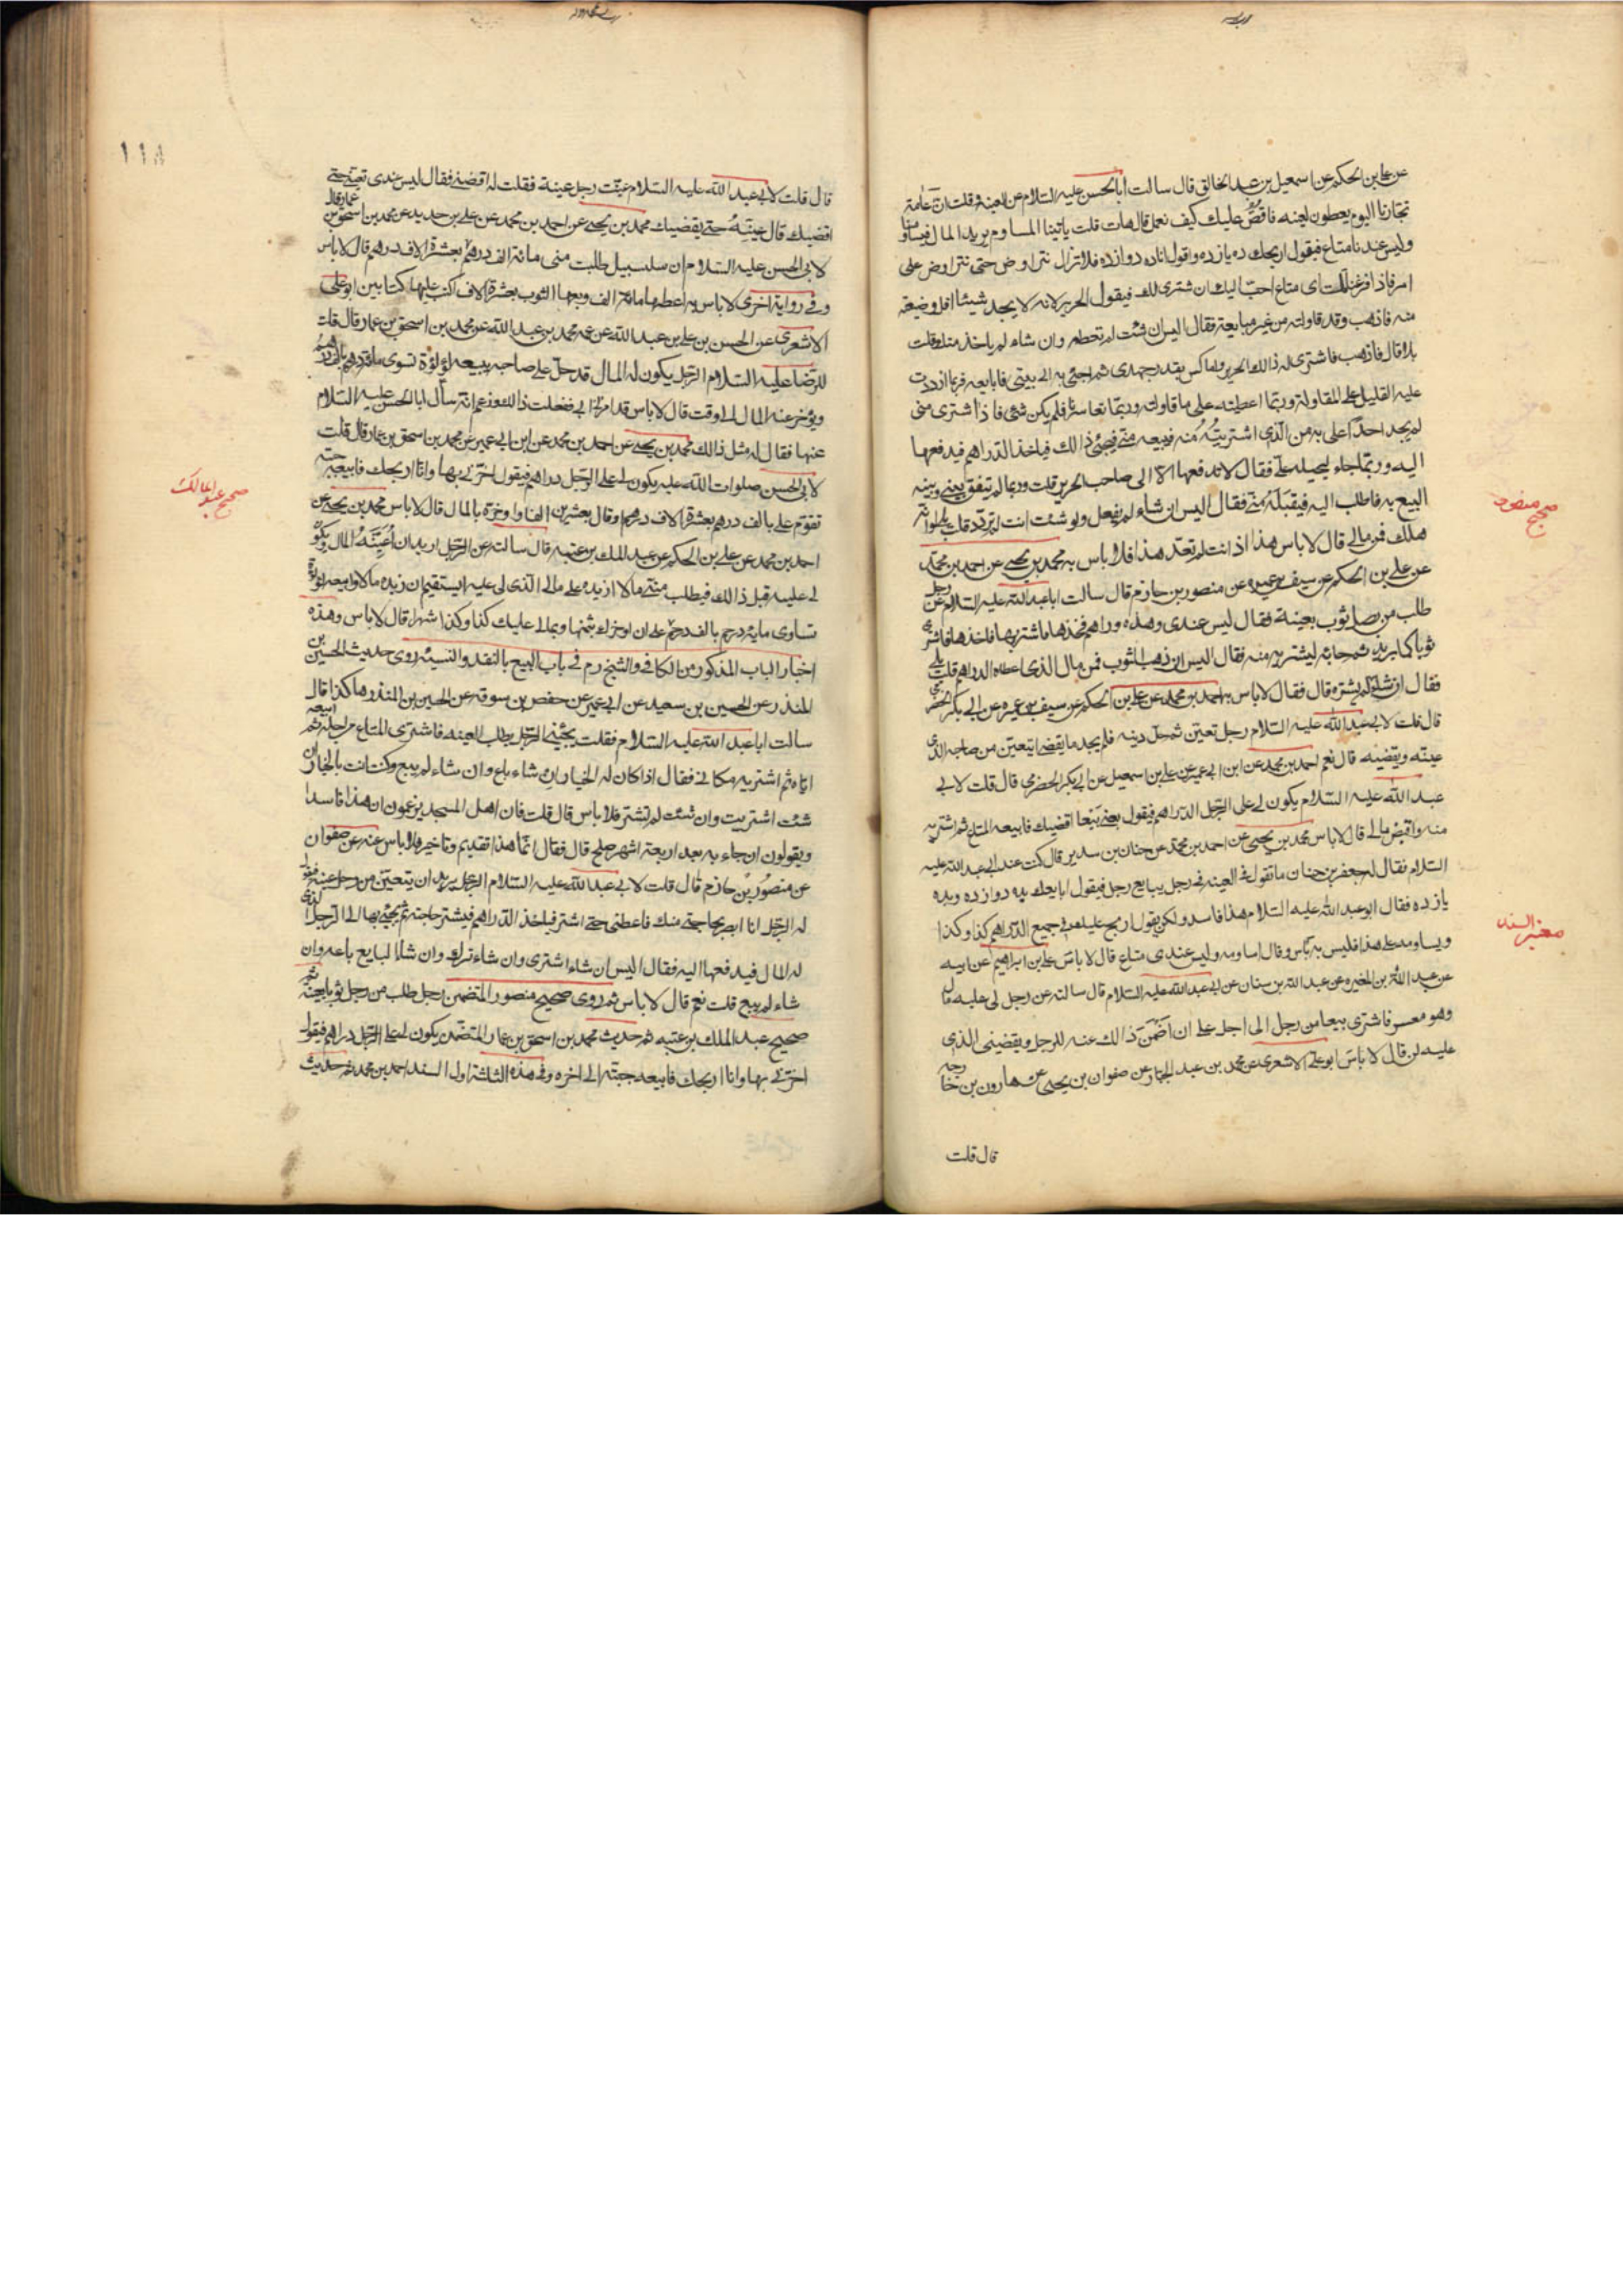 عن علي بن الحكم عن اسمعيل بن عبد الخالق قال سالت ابا الحسن عليه السلام عن العينة وقلت ان عامة
تجارنا اليوم يعطون العينه فاقص عليك كيف نعمل قال هات قلت ياتينا المساوم يريد المال فيساومنا
وليس عندنا متاع فيقول اربحك ده يازده واقول انا ده دوازده فلا نزال نتراوض حتى نتراوض على
امر فاذا فرغنا قلت اى متاع احب اليك ان اشترى لك فيقول الحرير لانه لا يجد شيئا اقل وضيعة
منه فاذهب وقد قاولته من غير مبايعة فقال اليس ان شئت لم تعطه وان شاء لم ياخذ منك قلت
بلى قال فاذهب فاشترى له ذالك الحرير واماكس بقدر جهدى ثم اجئى به الى بيتى فابايعه فربما ازددت
عليه القليل على المقاولة وربما اعطيته على ما قاولته وربما تعاسرنا فلم يكن شئ فاذا اشترى منى
لم يجد احدا اغلى به من الذى اشتريته منه فيبيعه منه فيجئ ذالك فياخذ الدراهم فيدفعها
اليه وربما جاء ليحيله على فقال لا تدفعها الا الى صاحب الحرير قلت وربما لم يتفق بينى وبينه
البيع به فاطلب اليه فيقبله منى فقال اليس ان شاء لم يفعل ولو شئت انت لم ترد قلت بلى لو انه
هلك فمن مالى قال لا باس بهذا اذا انت لم تعد هذا فلا باس به محمد بن يحيى عن احمد بن محمد
عن على بن الحكم عن سيف بن عميره عن منصور بن حازم قال سالت ابا عبد الله عليه السلام عن رجل
طلب من رجل ثوب بعينة فقال ليس عندى وهذه دراهم فخذها فاشتر بها فاخذها فاشترى
ثوبا كما يريد ثم جاء به ليشتريه منه فقال اليس ان ذهب الثوب فمن مال الذى اعطاه الدراهم قلت بلى
فقال ان شاء لم يشتره قال فقال لا باس به احمد بن محمد عن على بن الحكم عن سيف بن عميره عن ابى بكر الحضرمى
قال قلت لابى عبد الله عليه السلام رجل تعين ثم حل دينه فلم يجد ما يقضى ايتعين من صاحبه الذى
عينه ويقضيه قال نعم احمد بن محمد عن ابن ابى عمير عن على بن اسمعيل عن ابى بكر الحضرمى قال قلت لابى
عبد الله عليه السلام يكون لى على الرجل الدراهم فيقول بعنى بيعا اقضيك فابيعه المتاع ثم اشتريه
منه واقبض مالى قال لا باس محمد بن يحيى عن احمد بن محمد عن حنان بن سدير قال كنت عند ابى عبد الله عليه
السلام فقال له جعفر بن حنان ما تقول فى العينه فى رجل يبايع رجل فيقول ابايعك بده دوازده وبده
يازده فقال ابو عبد الله عليه السلام هذا فاسد ولكن يقول اربح عليك فى جميع الدراهم كذا وكذا
ويساومه على هذا فليس به باس وقال اساومه وليس عندى متاع قال لا باس على بن ابراهيم عن ابيه
عن عبد الله بن المغيره عن عبد الله بن سنان عن ابى عبد الله عليه السلام قال سالته عن رجل لى عليه مال
وهو معسر فاشترى بيعا من رجل الى اجل على ان اضمن ذالك عنه للرجل ويقضينى الذى
عليه لى قال لا باس ابو على الاشعرى عن محمد بن عبد الجبار عن صفوان بن يحيى عن هارون بن خارجه
قال قلت
صحيح منصور
معتبر السند
قال قلت لابى عبد الله عليه السلام عينت رجل عينة فقلت له اقضنى فقال ليس عندى تعيننى حتى
اقضيك قال عينه حتى يقضيك محمد بن يحيى عن احمد بن محمد عن على بن حديد عن محمد بن اسحق بن عمار قال
لابى الحسن عليه السلام ان سلسبيل طلبت منى مائة الف درهم بعشرة الاف درهم قال لا باس
وفى رواية اخرى لا باس به اعطها مائة الف وبعها الثوب بعشرة الاف اكتب عليها كتابين ابو على
الاشعرى عن الحسن بن على بن عبد الله عن عمه محمد بن عبد الله عن محمد بن اسحق بن عمار قال قلت
للرضا عليه السلام الرجل يكون له المال قد حل على صاحبه يبيعه لؤلؤة تسوى مائة درهم بالف درهم
ويؤخر عنه المال الى وقت قال لا باس قد امرنى ابى ففعلت ذالك وزعم انه سأل ابا الحسن عليه السلام
عنها فقال له مثل ذالك محمد بن يحيى عن احمد بن محمد عن ابن ابى عمير عن محمد بن اسحق بن عمار قال قلت
لابى الحسن صلوات الله عليه يكون لى على الرجل دراهم فيقول اخرنى بها وانا اربحك فابيعه جبة
تقوم على بالف درهم بعشرة الاف درهم او قال بعشرين الفا واوخره بالمال قال لا باس محمد بن يحيى عن
احمد بن محمد عن على بن الحكم عن عبد الملك بن عتبه قال سالته عن الرجل اريد ان اعينه المال ويكون
لى عليه قبل ذالك فيطلب منى مالا ازيده على مالى الذى لى عليه ايستقيم ان ازيده مالا وابيعه لؤلؤة
تساوى مايه درهم بالف درهم على ان اوخره بثمنها وبمالى عليك كذا وكذا شهرا قال لا باس وهذه
اخبار الباب المذكور من الكافى والشيخ ره فى باب البيع بالنقد والنسيئه روى حديث الحسين بن
المنذر عن الحسين بن سعيد عن ابى عمير عن حفص بن سوقه عن الحسين بن المنذر هاكذا قال
سالت ابا عبد الله عليه السلام فقلت يجيئنى الرجل يطلب العينه فاشترى المتاع من اجله ثم ابيعه
اياه ثم اشتريه مكانى فقال اذا كان له الخيار ان شاء باع وان شاء لم يبع وكنت انت بالخيار ان
شئت اشتريت وان شئت لم تشتر فلا باس قال قلت فان اهل المسجد يزعمون ان هذا فاسدا
ويقولون ان جاء به بعد اربعة اشهر صلح قال فقال انما هذا تقديم وتاخير فلا باس عنه عن صفوان
عن منصور بن حازم قال قلت لابى عبد الله عليه السلام الرجل يريد ان يتعين من رجل عينة فيقول
له الرجل انا ابصر بحاجتى منك فاعطنى حتى اشترى فياخذ الدراهم فيشترى حاجته ثم يجئ بها الى الرجل الذى
له المال فيدفعها اليه فقال اليس ان شاء اشترى وان شاء ترك وان شاء البايع باعه وان
شاء لم يبع قلت نعم قال لا باس ثم روى صحيح منصور المتضمن رجل طلب من رجل ثوبا بعينة ثم
صحيح عبد الملك بن عتبه ثم حديث محمد بن اسحق بن عمار المتضمن يكون لى على الرجل دراهم فيقول
اخرنى بها وانا اربحك فابيعه جبته الى اخره وفى هذه الثلثة اول السند احمد بن محمد ثم حديث
صحيح عبد الملك